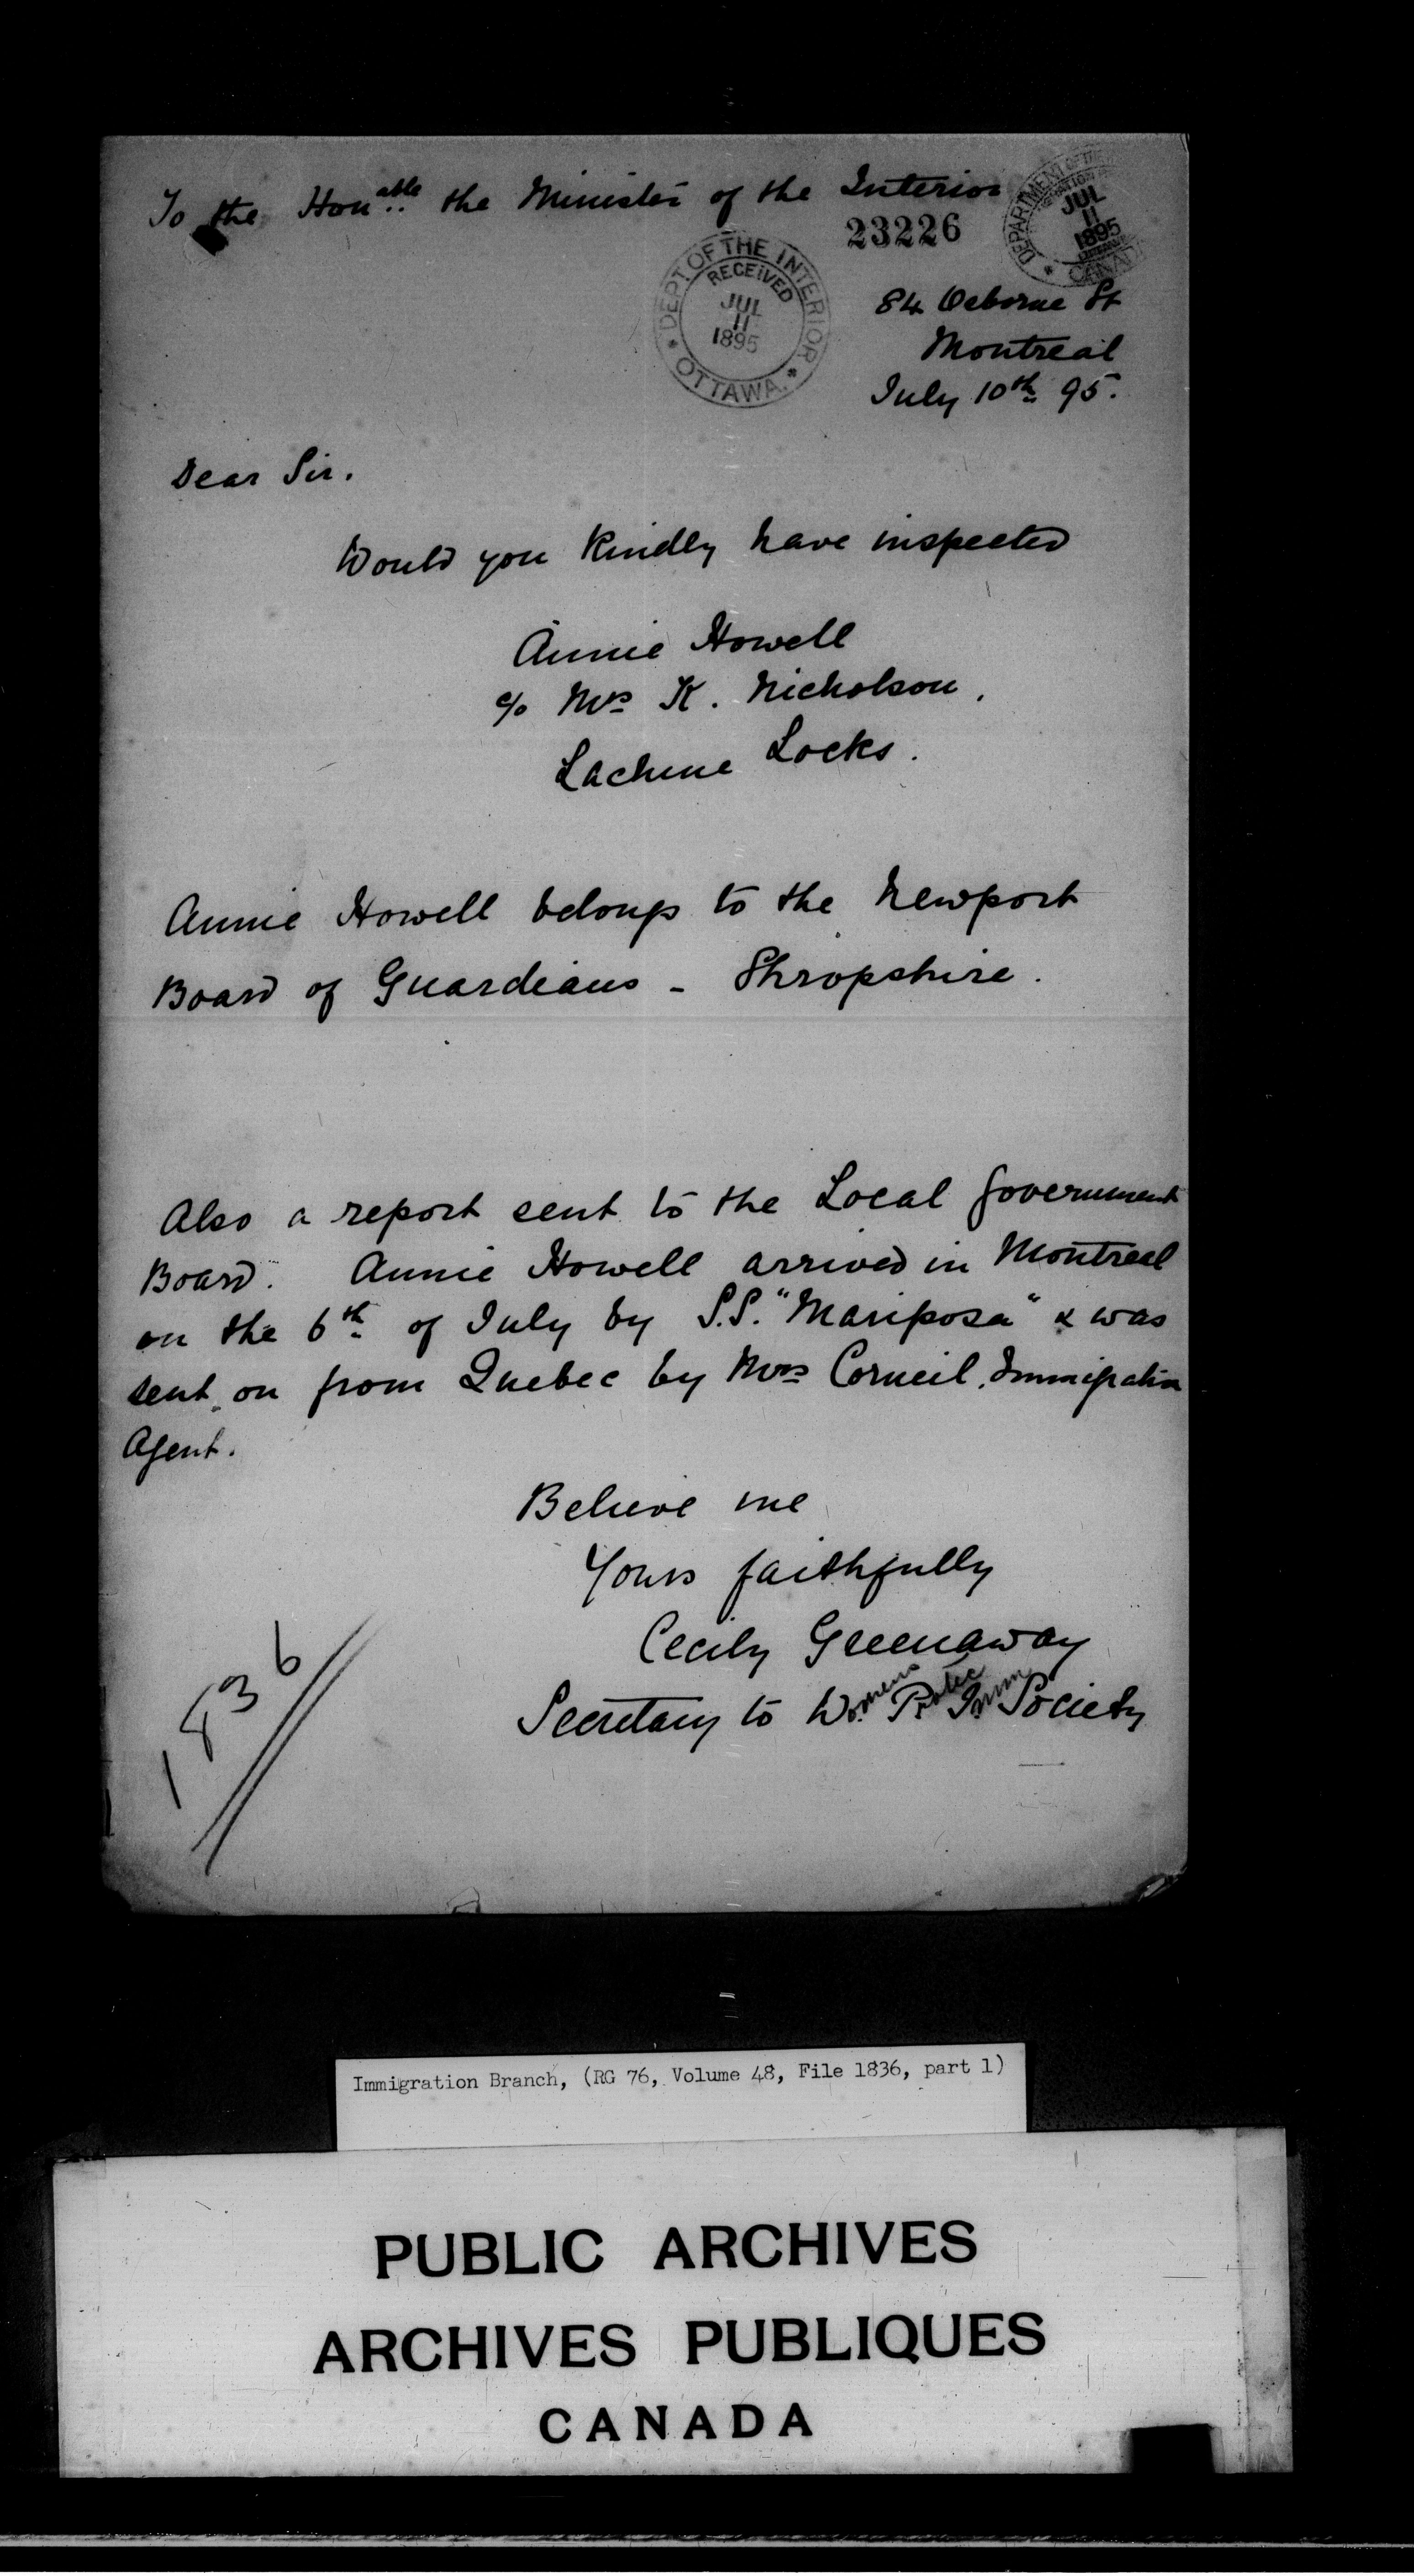 To the Hon^able the Minister of the Interior
23226
DEPARTMENT OF THE
JUL
11
1895
CANADA
DEPT. OF THE INTERIOR
RECEIVED
JUL
11
1895
OTTAWA.
84 Osborne St
Montreal
July 10th 95.
Dear Sir.
Would you kindly have inspected
Annie Howell
c/o Mrs K. Nicholson,
Lachine Locks.
Annie Howell belongs to the Newport
Board of Guardians - Shropshire.
Also a report sent to the Local Government
Board. Annie Howell arrived in Montreal
on the 6th of July by S.S. "Mariposa" & was
sent on from Quebec by Mrs Corneil, Immigration
Agent.
Believe me
Yours faithfully
Cecily Greenaway
Secretary to Womens Protec Imm Society
1836
Immigration Branch, (RG 76, Volume 48, File 1836, part 1)
PUBLIC ARCHIVES
ARCHIVES PUBLIQUES
CANADA